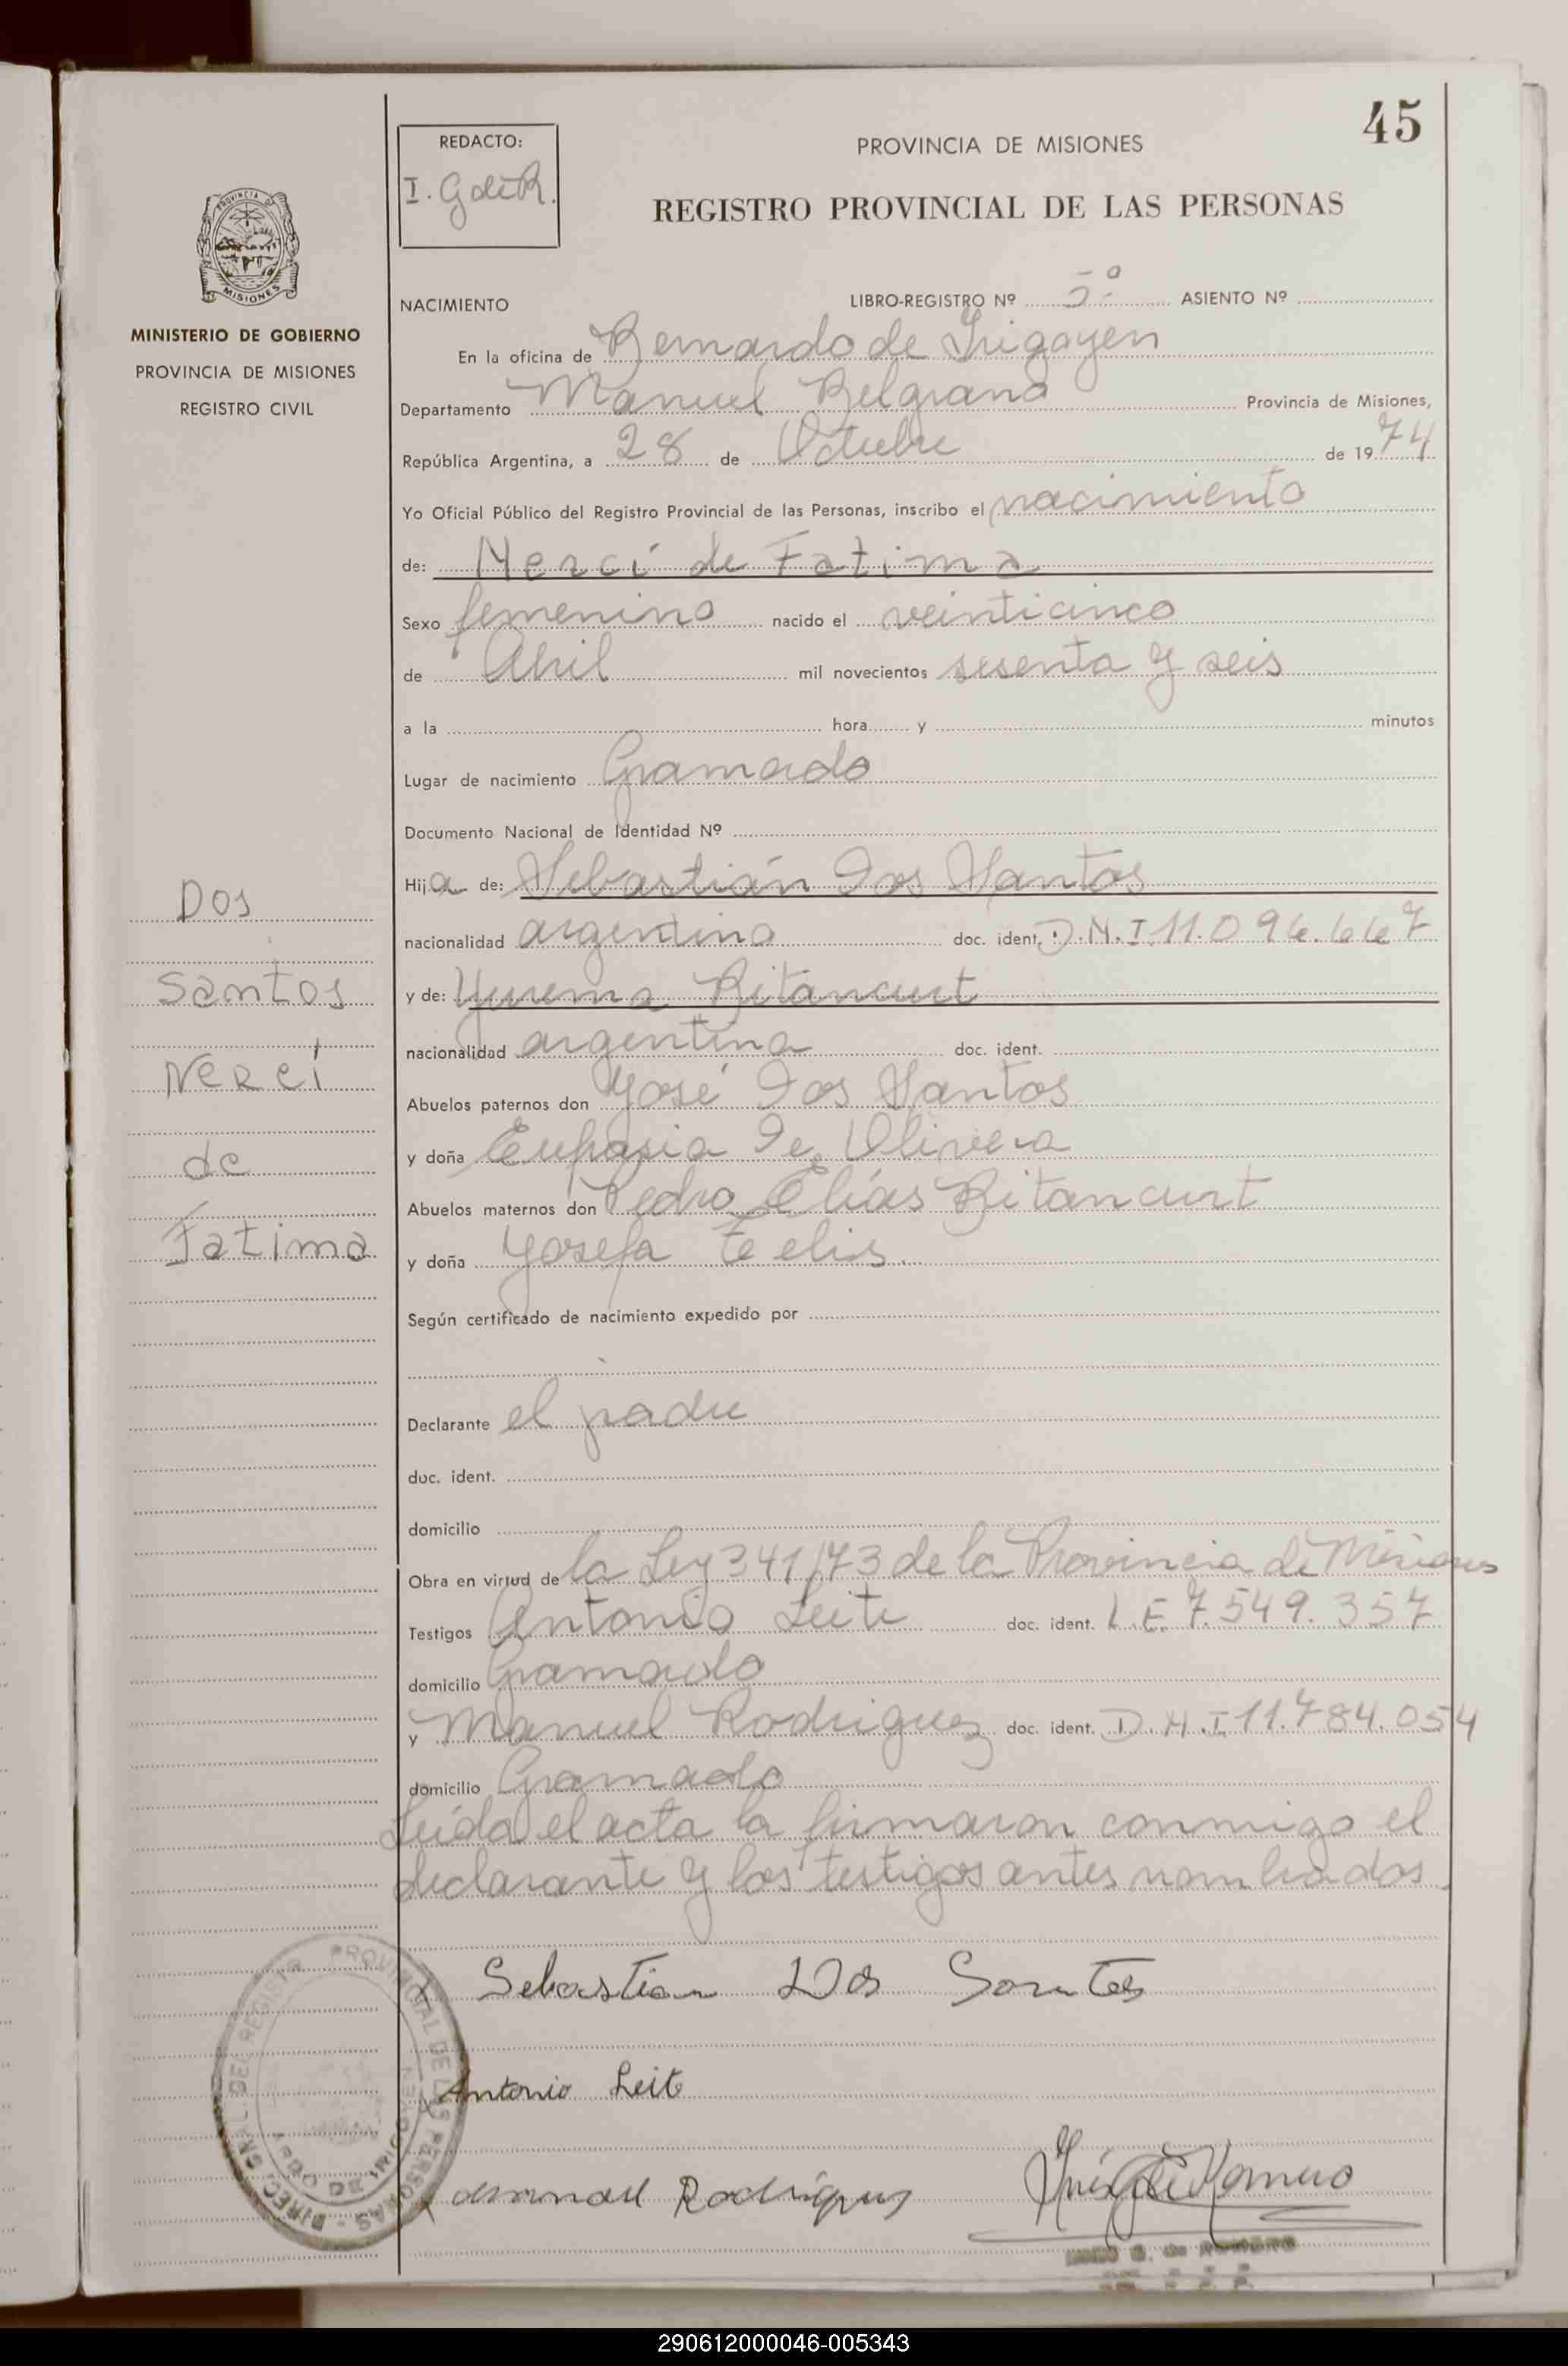 45
REDACTO:
I. G de R.
PROVINCIA DE MISIONES
REGISTRO PROVINCIAL DE LAS PERSONAS
MISIONES
MINISTERIO DE GOBIERNO
PROVINCIA DE MISIONES
REGISTRO CIVIL
NACIMIENTO LIBRO-REGISTRO Nº 5º ASIENTO Nº
En la oficina de Bernardo de Irigoyen
Departamento Manuel Belgrano Provincia de Misiones,
República Argentina, a 28 de Octubre de 1974
Yo Oficial Público del Registro Provincial de las Personas, inscribo el nacimiento
de: Nerci de Fatima
Sexo femenino nacido el veinticinco
de Abril mil novecientos sesenta y seis
a la hora y minutos
Lugar de nacimiento Gramado
Documento Nacional de Identidad Nº
Hija de: Sebastián Dos Santos
nacionalidad argentino doc. ident. D.N.I. 11.096.667
y de: Yurema Bitancurt
nacionalidad argentina doc. ident.
Abuelos paternos don José Dos Santos
y doña De Olivera
Abuelos maternos don Pedro Elías Bitancurt
y doña Josefa
Según certificado de nacimiento expedido por
Declarante el padre
doc. ident.
domicilio
Obra en virtud de la Ley 341/73 de la Provincia de Misiones
Testigos Antonio Leite doc. ident. L.E. 7.549.357
domicilio Gramado
y Manuel Rodriguez doc. ident. D.N.I. 11.784.054
domicilio Gramado
Leída el acta la firmaron conmigo el
declarante y los testigos antes nombrados.
Dos
Santos
Nerci
de
Fatima
Sebastian Dos Santos
Antonio Leite
Manuel Rodriguez
Inés G de Romero
DIREC. GRAL. DEL REGISTRO PROVINCIAL DE LAS PERSONAS
290612000046-005343